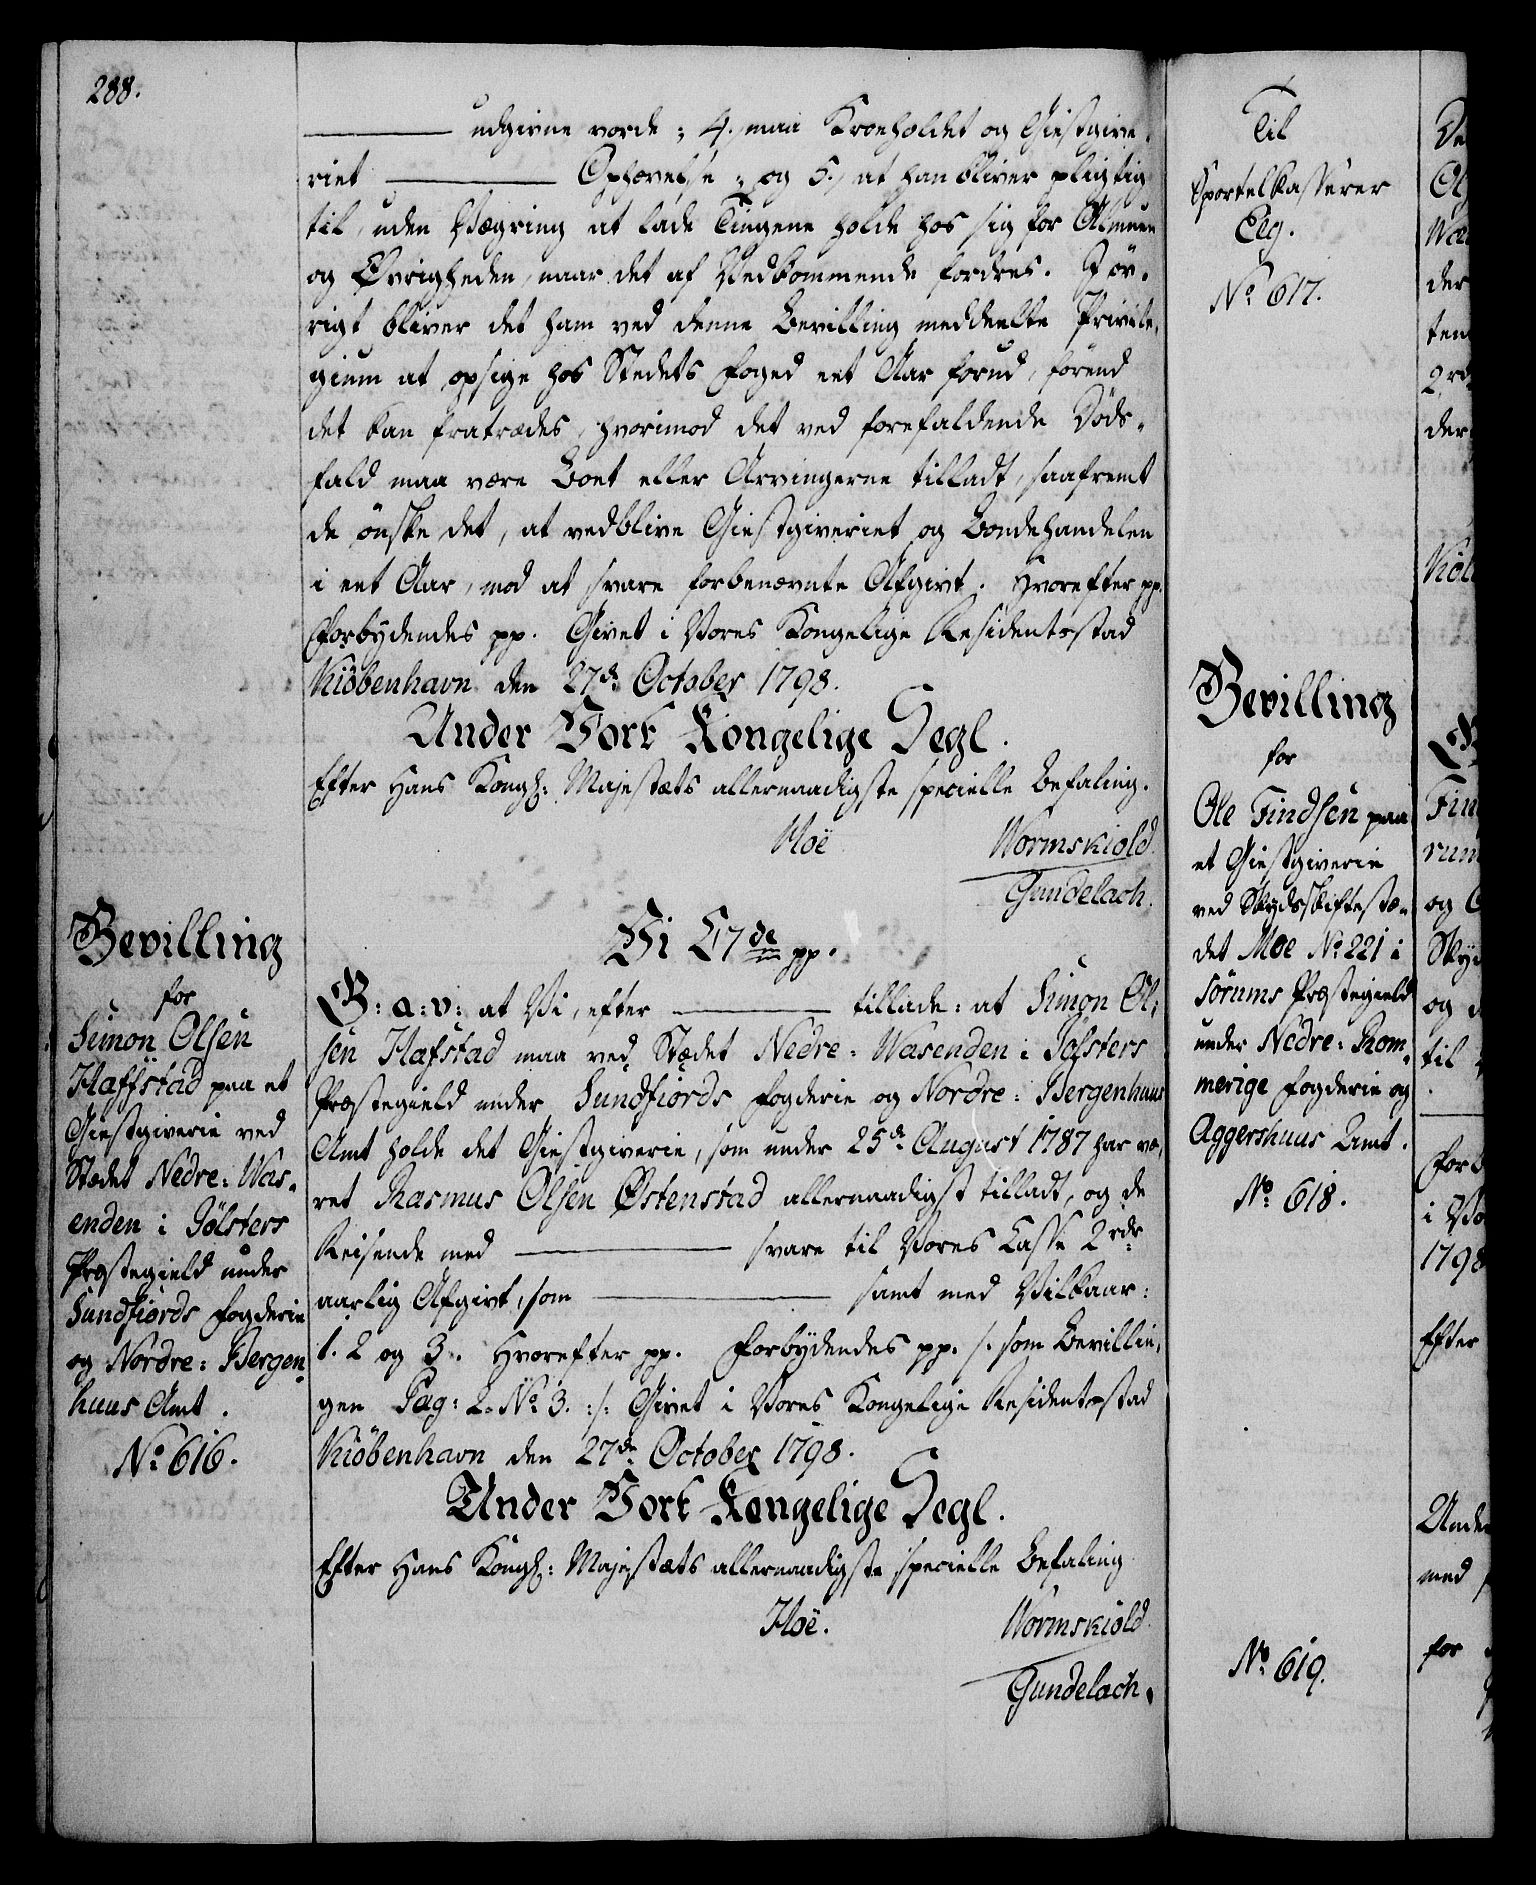 288.
——— udgivne vorde; 4. maa Kroeholdet og Giestgive-
riet ——— Ophævelse; og 5.) at han bliver pligtig
til, uden Vægring at lade Tingene holde hos sig for Almuen
og Øvrigheden, naar det af Vedkommende fordres. I øv-
rigt bliver det ham ved denne Bevilling meddeelte Privile-
gium at opsige hos Stedets Foged eet Aar forud, førend
det kan fratrædes, hvorimod det ved forefaldende Døds-
fald maa være Boet eller Arvingerne tilladt, saafremt
de ønske det, at vedblive Giestgiveriet og Bondehandelen
i eet Aar, mod at svare forbenævnte Afgivt. Hvorefter pp.
Forbydendes pp. Givet i Vores Kongelige Residentsstad
Kiöbenhavn den 27de October 1798.
Under Vort Kongelige Segl.
Efter Hans Kongl: Majestæts allernaadigste specielle Befaling.
Hoë Wormskiold
Gundelach.
Bevilling
for
Simon Olsen
Haffstad paa et
Giestgiverie ved
Stædet Nedre: Was-
enden i Jölsters
Præstegield under
Sundfiords Fogderie
og Nordre: Bergen-
huus Amt.
No 616.
Vi C7de pp.
G: a: v: at Vi, efter ——— tillade: at Simon Ol-
sen Hafstad maa ved Stædet Nedre: Wasenden i Jölsters
Præstegield under Sundfiords Fogderie og Nordre: Bergenhuus
Amt holde det Giestgiverie, som under 25de August 1787 har væ-
ret Rasmus Olsen Østenstad allernaadigst tilladt, og de
Reisende med ——— svare til Vores Casse 2 rdr
aarlig Afgivt, som ——— samt med Vilkaar:
1. 2 og 3. Hvorefter pp. Forbydendes pp. /: som Bevillin-
gen Pag: 2. No 3. :/: Givet i Vores Kongelige Residentsstad
Kiöbenhavn den 27de October 1798.
Under Vort Kongelige Segl.
Efter Hans Kongl: Majestæts allernaadigste specielle Befaling
Hoë. Wormskiold.
Gundelach.
Til
Sportelkasserer
Elg.
No 617.
Bevilling
for
Ole Findsen paa
et Giestgiverie
ved Skydsskiftestæ-
det Moe No 221 i
Sörums Præstegield
under Nedre: Rom-
merige Fogderie og
Aggershuus Amt.
No 618.
No 619.